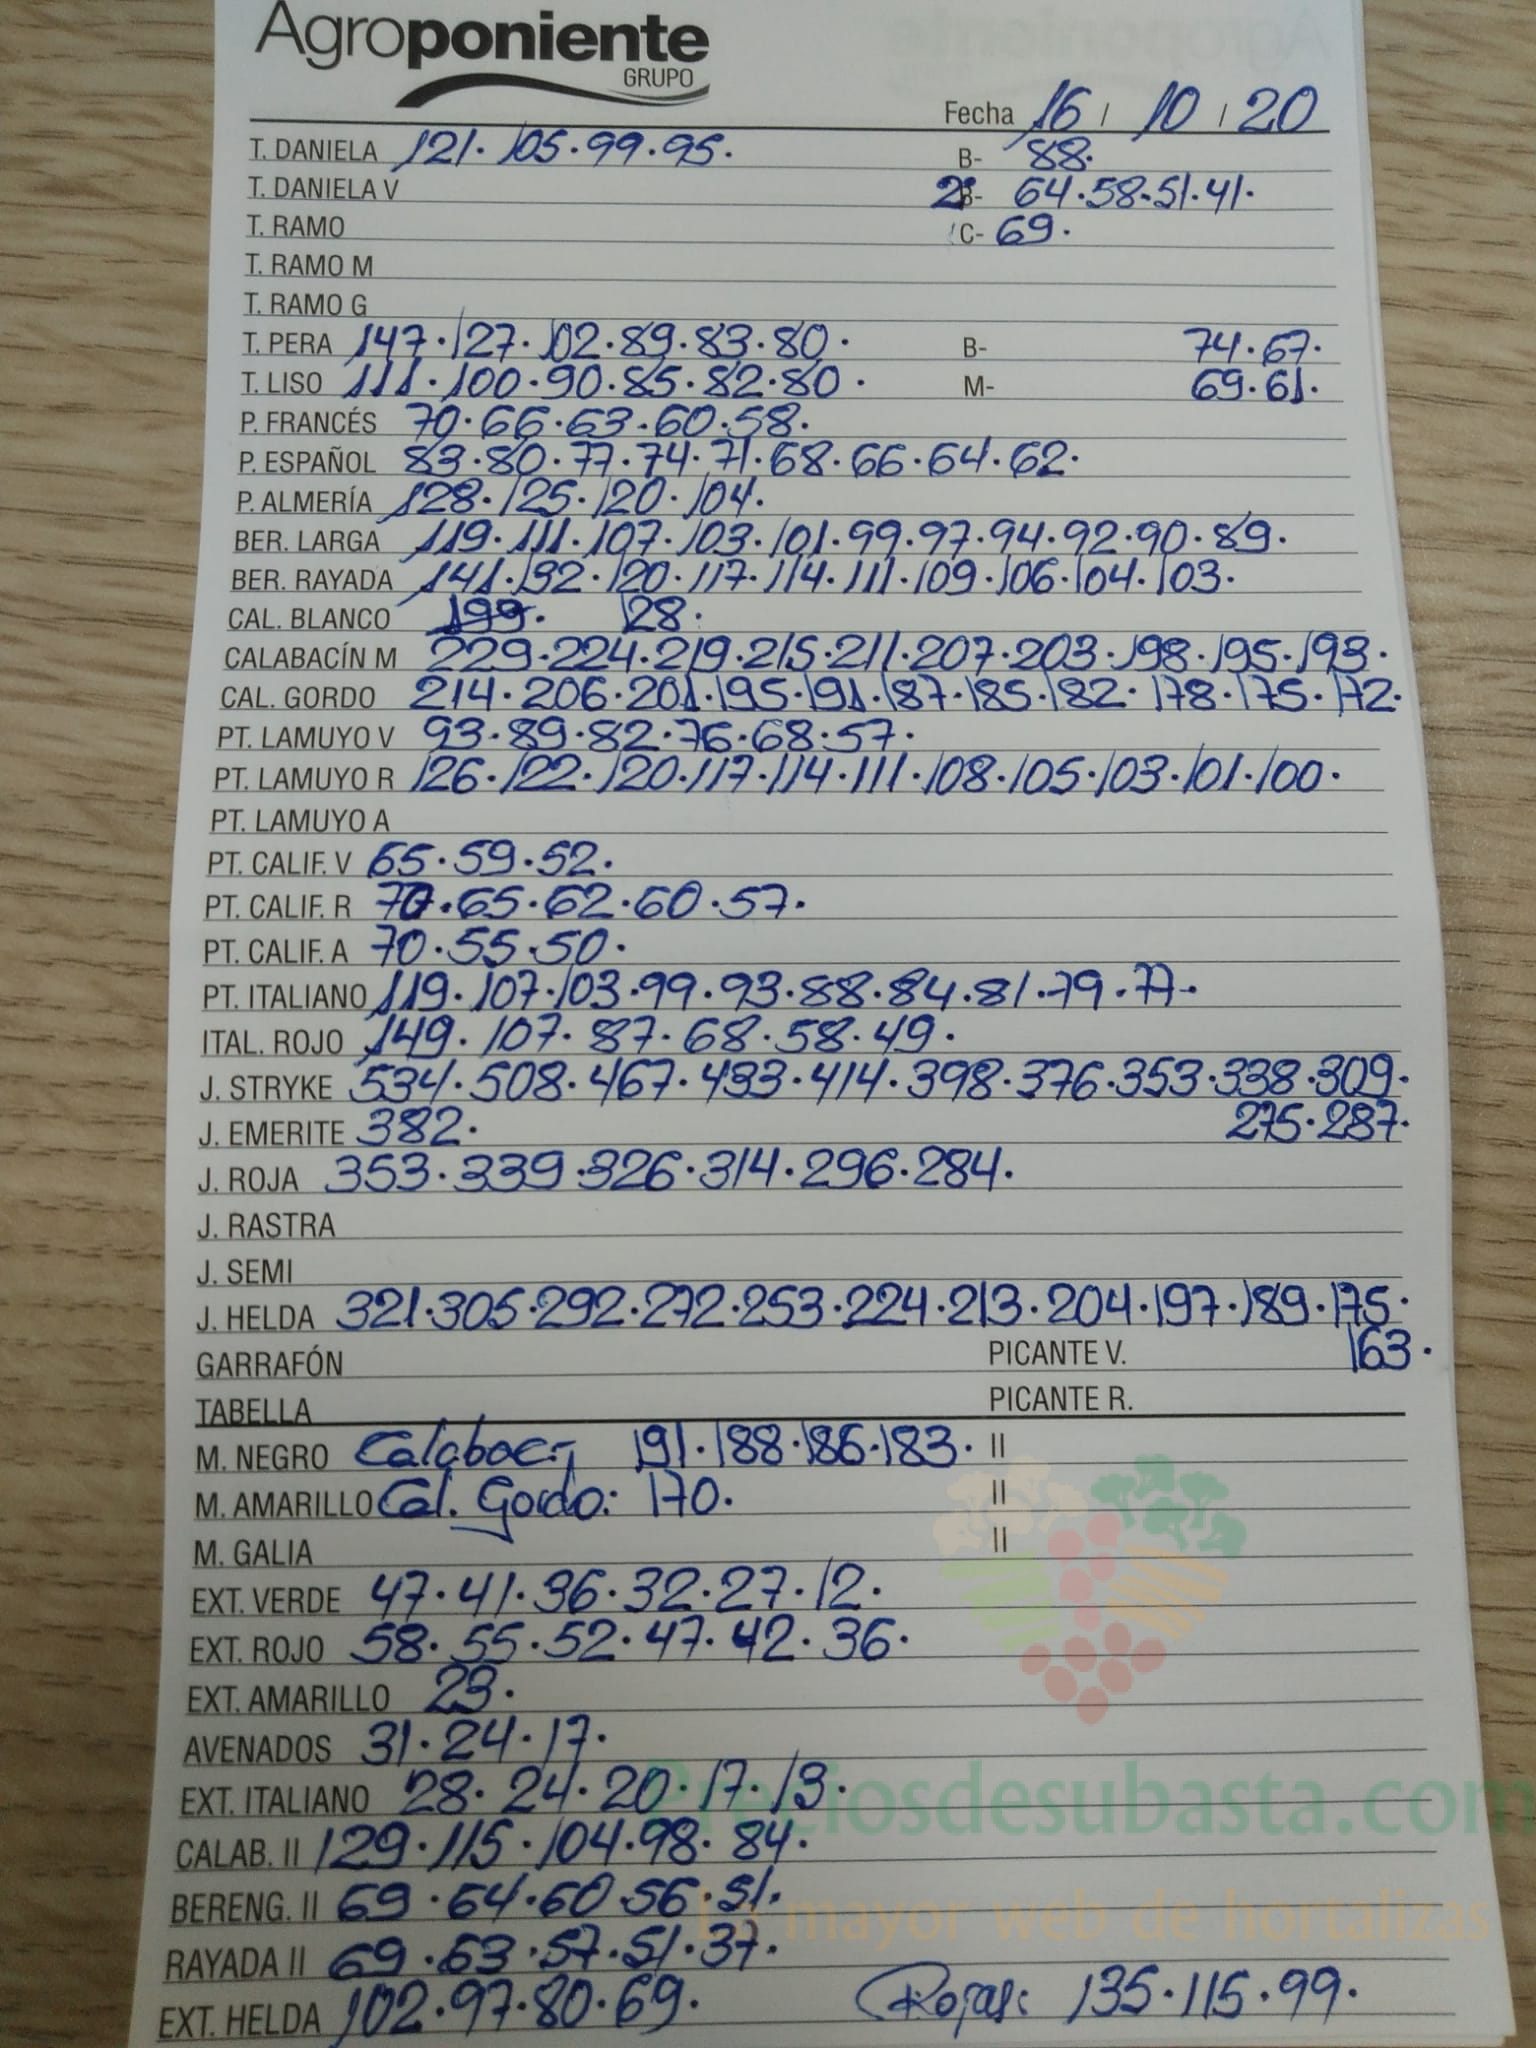 Agroponiente
GRUPO
Fecha 16 / 10 / 20
T. DANIELA 121. 105. 99. 95. B- 88.
T. DANIELA V 2ª B- 64. 58. 51. 41.
T. RAMO C- 69.
T. RAMO M
T. RAMO G
T. PERA 147. 127. 102. 89. 83. 80. B- 74. 67.
T. LISO 111. 100. 90. 85. 82. 80. M- 69. 61.
P. FRANCÉS 70. 66. 63. 60. 58.
P. ESPAÑOL 83. 80. 77. 74. 71. 68. 66. 64. 62.
P. ALMERÍA 128. 125. 120. 104.
BER. LARGA 119. 111. 107. 103. 101. 99. 97. 94. 92. 90. 89.
BER. RAYADA 141. 132. 120. 117. 114. 111. 109. 106. 104. 103.
CAL. BLANCO 199. 128.
CALABACÍN M 229. 224. 219. 215. 211. 207. 203. 198. 195. 193.
CAL. GORDO 214. 206. 201. 195. 191. 187. 185. 182. 178. 175. 172.
PT. LAMUYO V 93. 89. 82. 76. 68. 57.
PT. LAMUYO R 126. 122. 120. 117. 114. 111. 108. 105. 103. 101. 100.
PT. LAMUYO A
PT. CALIF. V 65. 59. 52.
PT. CALIF. R 70. 65. 62. 60. 57.
PT. CALIF. A 70. 55. 50.
PT. ITALIANO 119. 107. 103. 99. 93. 88. 84. 81. 79. 77.
ITAL. ROJO 149. 107. 87. 68. 58. 49.
J. STRYKE 534. 508. 467. 433. 414. 398. 376. 353. 338. 309.
J. EMERITE 382. 275. 287.
J. ROJA 353. 339. 326. 314. 296. 284.
J. RASTRA
J. SEMI
J. HELDA 321. 305. 292. 272. 253. 224. 213. 204. 197. 189. 175.
GARRAFÓN PICANTE V. 163.
TABELLA PICANTE R.
M. NEGRO Calabac- 191. 188. 186. 183. II
M. AMARILLO Cal. Gordo: 170. II
M. GALIA II
EXT. VERDE 47. 41. 36. 32. 27. 12.
EXT. ROJO 58. 55. 52. 47. 42. 36.
EXT. AMARILLO 23.
AVENADOS 31. 24. 17.
EXT. ITALIANO 28. 24. 20. 17. 13.
Preciosdesubasta.com
CALAB. II 129. 115. 104. 98. 84.
BERENG. II 69. 64. 60. 56. 51.
La mayor web de hortalizas
RAYADA II 69. 63. 57. 51. 37.
EXT. HELDA 102. 97. 80. 69. Rojas: 135. 115. 99.